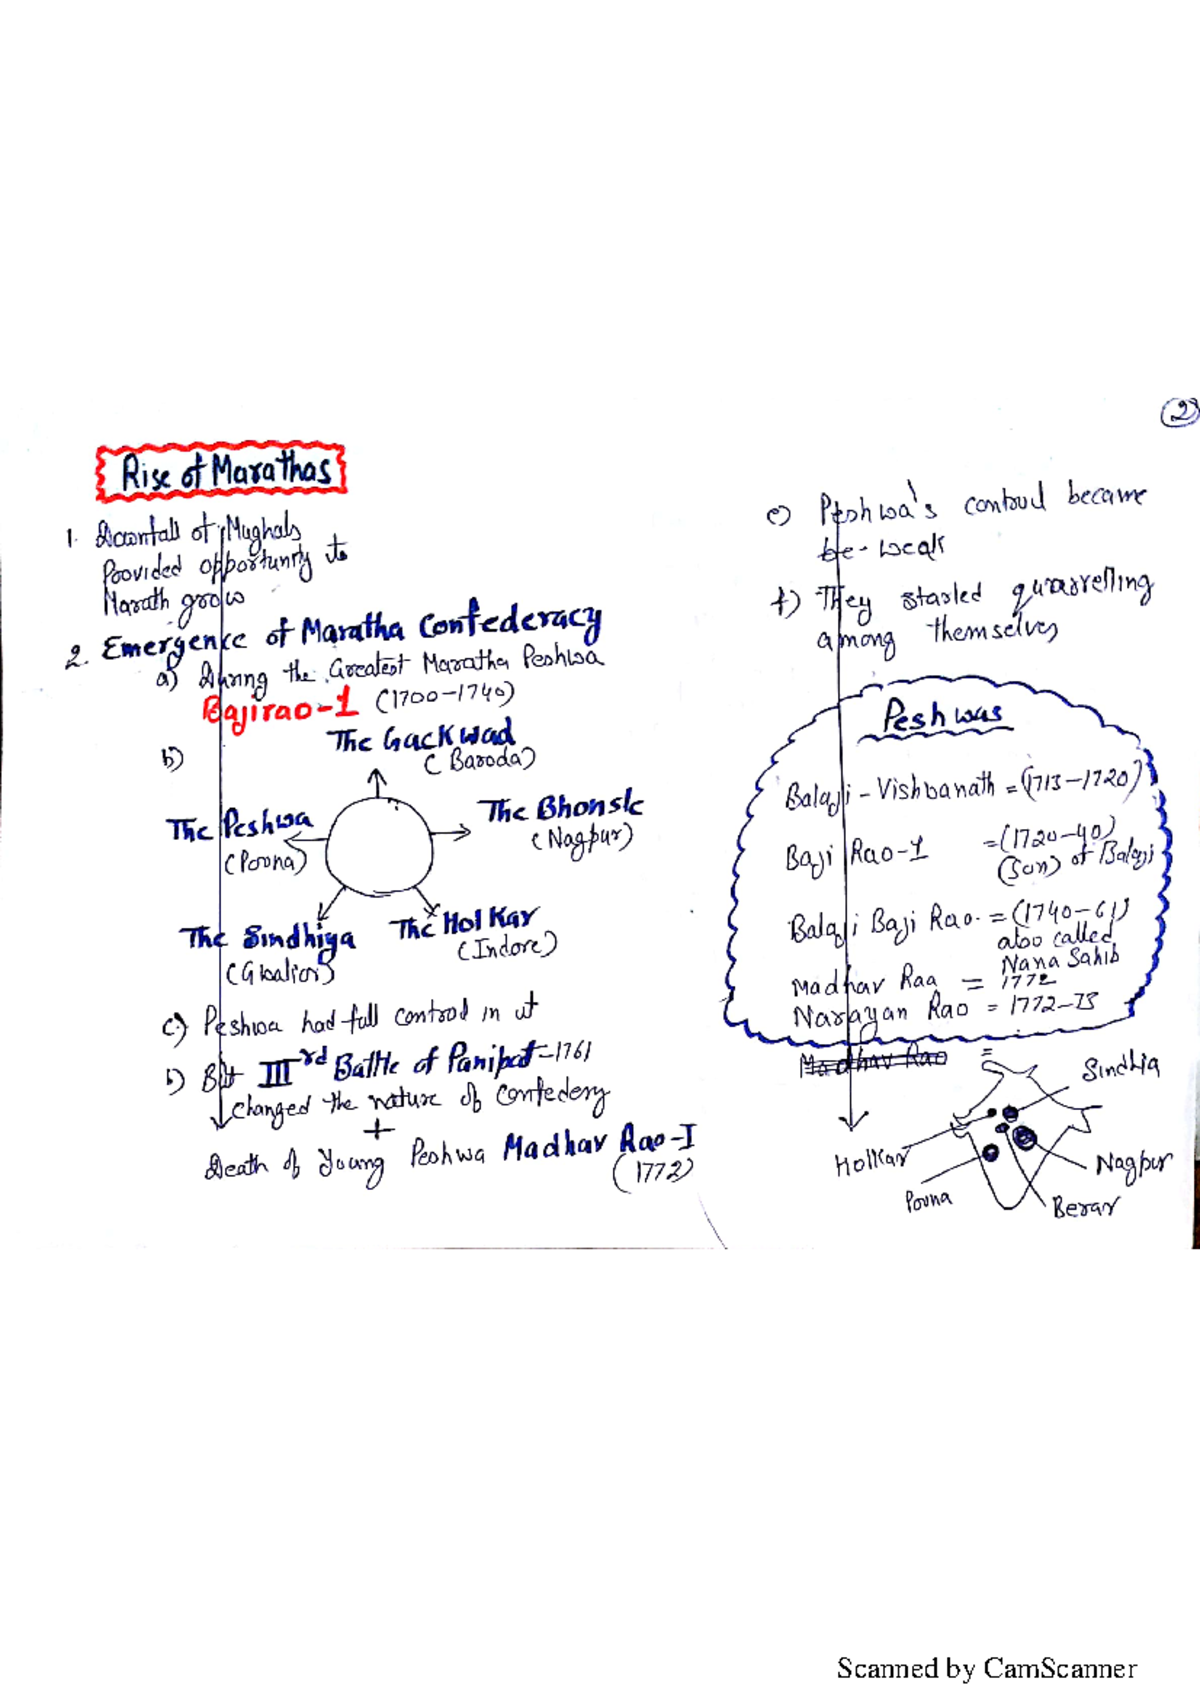 2
Rise of Marathas
1. Downfall of Mughals
Provided opportunity to
Marath grow
2. Emergence of Maratha Confederacy
a) During the Greatest Maratha Peshwa
Bajirao-1 (1700-1740)
b)
The Gackwad
(Baroda)
The Peshwa
(Poona)
The Bhonsle
(Nagpur)
The Sindhiya
(Gwalior)
The Holkar
(Indore)
c) Peshwa had full control in it
b) But IIIrd Battle of Panipat-1761
changed the nature of Confedery
+
Death of Young Peshwa Madhav Rao-I
(1772)
e) Peshwa's control became
be-weak
f) They started quarrelling
among themselves
Peshwas
Balaji-Vishwanath = (1713-1720)
Baji Rao-1 = (1720-40)
(Son) of Balaji
Balaji Baji Rao = (1740-61)
also called
Nana Sahib
Madhav Rao = 1772
Narayan Rao = 1772-73
Madhav Rao =
Sindhia
Holkar
Nagpur
Poona
Berar
Scanned by CamScanner